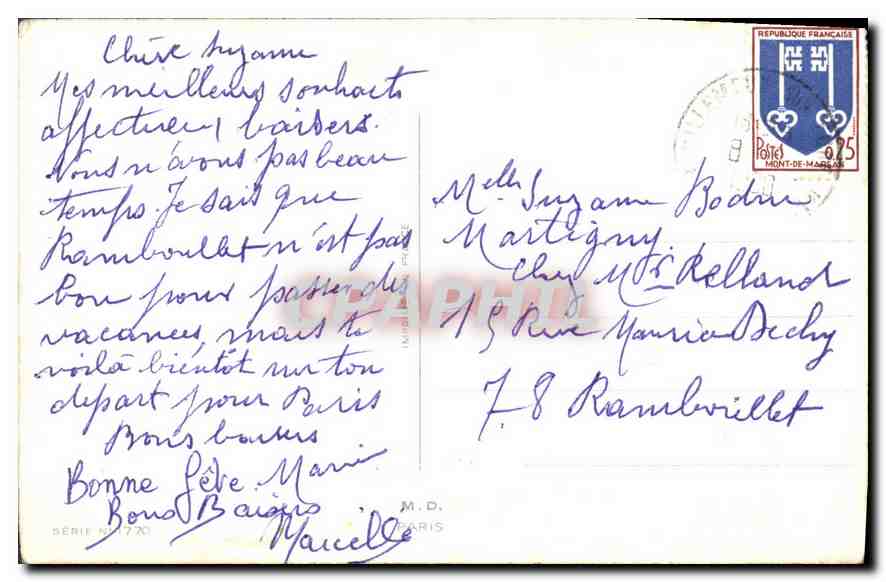 Chère Suzanne
Mes meilleurs souhaits
affectueux baisers.
Nous n'avons pas beau
temps. Je sais que
Ramboullet n'est pas
bon pour passer des
vacances, mais te
voilà bientôt sur ton
depart pour Paris
Bons baisers
Bonne fête. Marie
Bons Baisers
Marcelle
SÉRIE N° 1770
M.D.
PARIS
CPAPHIL
REPUBLIQUE FRANÇAISE
POSTES 0,25
MONT-DE-MARSAN
Melle Suzanne
Martigny
Chez Mr Relland
15 Rue Maurice Dechy
78 Rambouillet